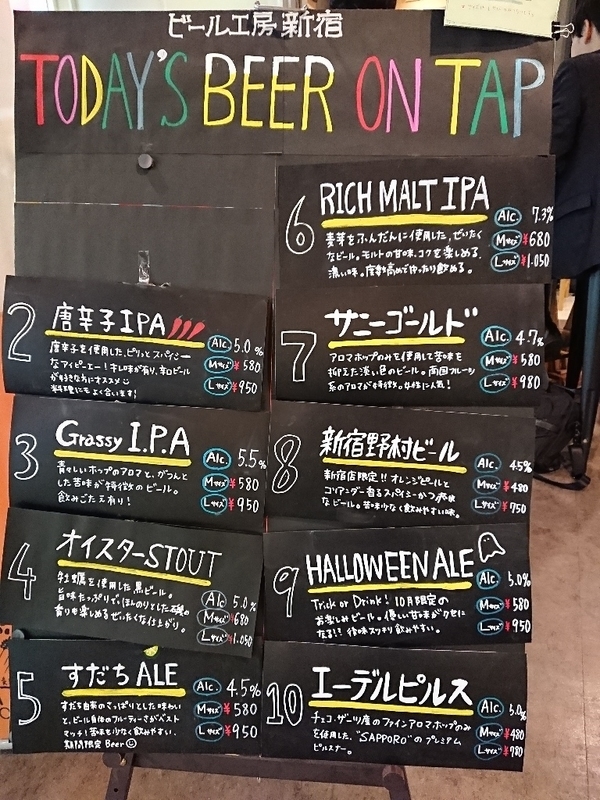 ビール工房 新宿
TODAY'S BEER ON TAP
2
唐辛子IPA
唐辛子を使用した、ピリッとスパイシー
なアイピーエー!キレ味が有り、辛口ビール
が好きな方にオススメ
料理にもよく合います!
Alc. 5.0%
Mサイズ ¥580
Lサイズ ¥950
3
Grassy I.P.A
青々しいホップのアロマと、がつんと
した苦味が特徴のビール。
飲みごたえ有り!
Alc. 5.5%
Mサイズ ¥580
Lサイズ ¥950
4
オイスターSTOUT
牡蠣を使用した黒ビール。
旨味たっぷりで、ほんのりとした
香りを楽しめるぜいたくな仕上がり。
Alc 5.0%
Mサイズ ¥680
Lサイズ ¥1,050
5
すだち ALE
すだち由来のさっぱりとした味わい
と、ビール自体のフルーティーさがベスト
マッチ!苦味も少なく飲みやすい。
期間限定 Beer
Alc. 4.5%
Mサイズ ¥580
Lサイズ ¥950
6
RICH MALT IPA
麦芽をふんだんに使用した、ぜいたく
なビール。モルトの甘味、コクを楽しめる、
濃い味。度数も高めでゆったり飲める。
Alc. 7.3%
Mサイズ ¥680
Lサイズ ¥1,050
7
サニーゴールド
アロマホップのみを使用して苦味を
抑えた淡い色のビール。南国フルーツ
系のアロマが特徴。女性に人気!
Alc. 4.7%
Mサイズ ¥580
Lサイズ ¥980
8
新宿野村ビール
新宿店限定!!オレンジピールと
コリアンダー香るスパイシーかつ爽快
なビール。苦味少なく飲みやすい味。
Alc. 4.5%
Mサイズ ¥480
Lサイズ ¥750
9
HALLOWEEN ALE
Trick or Drink! 10月限定の
お楽しみビール。優しい甘味がクセに
なる!!後味スッキリ飲みやすい。
Alc. 5.0%
Mサイズ ¥580
Lサイズ ¥950
10
エーデルピルス
チェコ・ザーツ産のファインアロマホップのみ
を使用した、"SAPPORO"のプレミアム
ピルスナー。
Alc. 5.0%
Mサイズ ¥480
Lサイズ ¥780